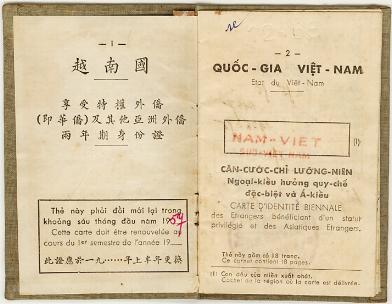 — 1 —
越南國
享受特權外僑
(即華僑)及其他亞洲外僑
兩年期身份證
Thẻ này phải đổi mới lại trong
khoảng sáu tháng đầu năm 19
Cette carte doit être renouvelée au
cours du 1er semestre de l'année 19
此證應於一九……年上半年更換
— 2 —
QUỐC - GIA VIỆT - NAM
Etat du Việt-Nam
NAM-VIET
SUD-VIET NAM
(1)
CĂN-CƯỚC-CHỈ LƯỠNG-NIÊN
Ngoại-kiều hưởng quy-chế
đặc-biệt và Á-kiều
CARTE D'IDENTITÉ BIENNALE
des Etrangers bénéficiant d'un statut
privilégié et des Asiatiques Etrangers.
Thẻ này gồm có 18 trang.
Ce carnet contient 18 pages.
(1) Con dấu của miền xuất phát.
Cachet de la région où la carte est délivrée.